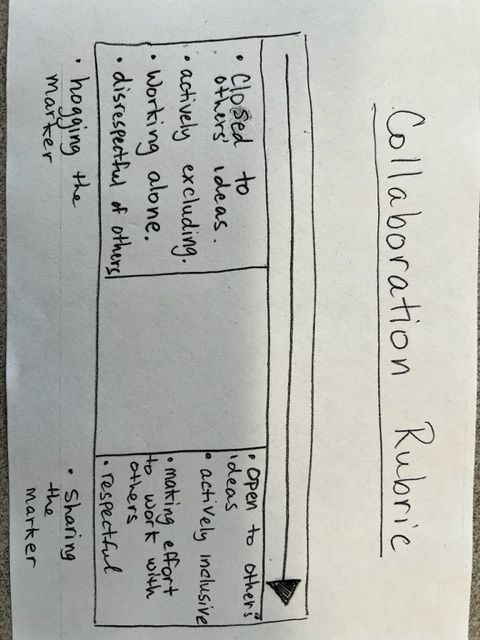 Collaboration Rubric
• Closed to
others' ideas.
• actively excluding.
• Working alone.
• disrespectful of others
• hogging the
marker
• open to others'
ideas
• actively inclusive
• making effort
to work with
others
• respectful
• Sharing
the
marker